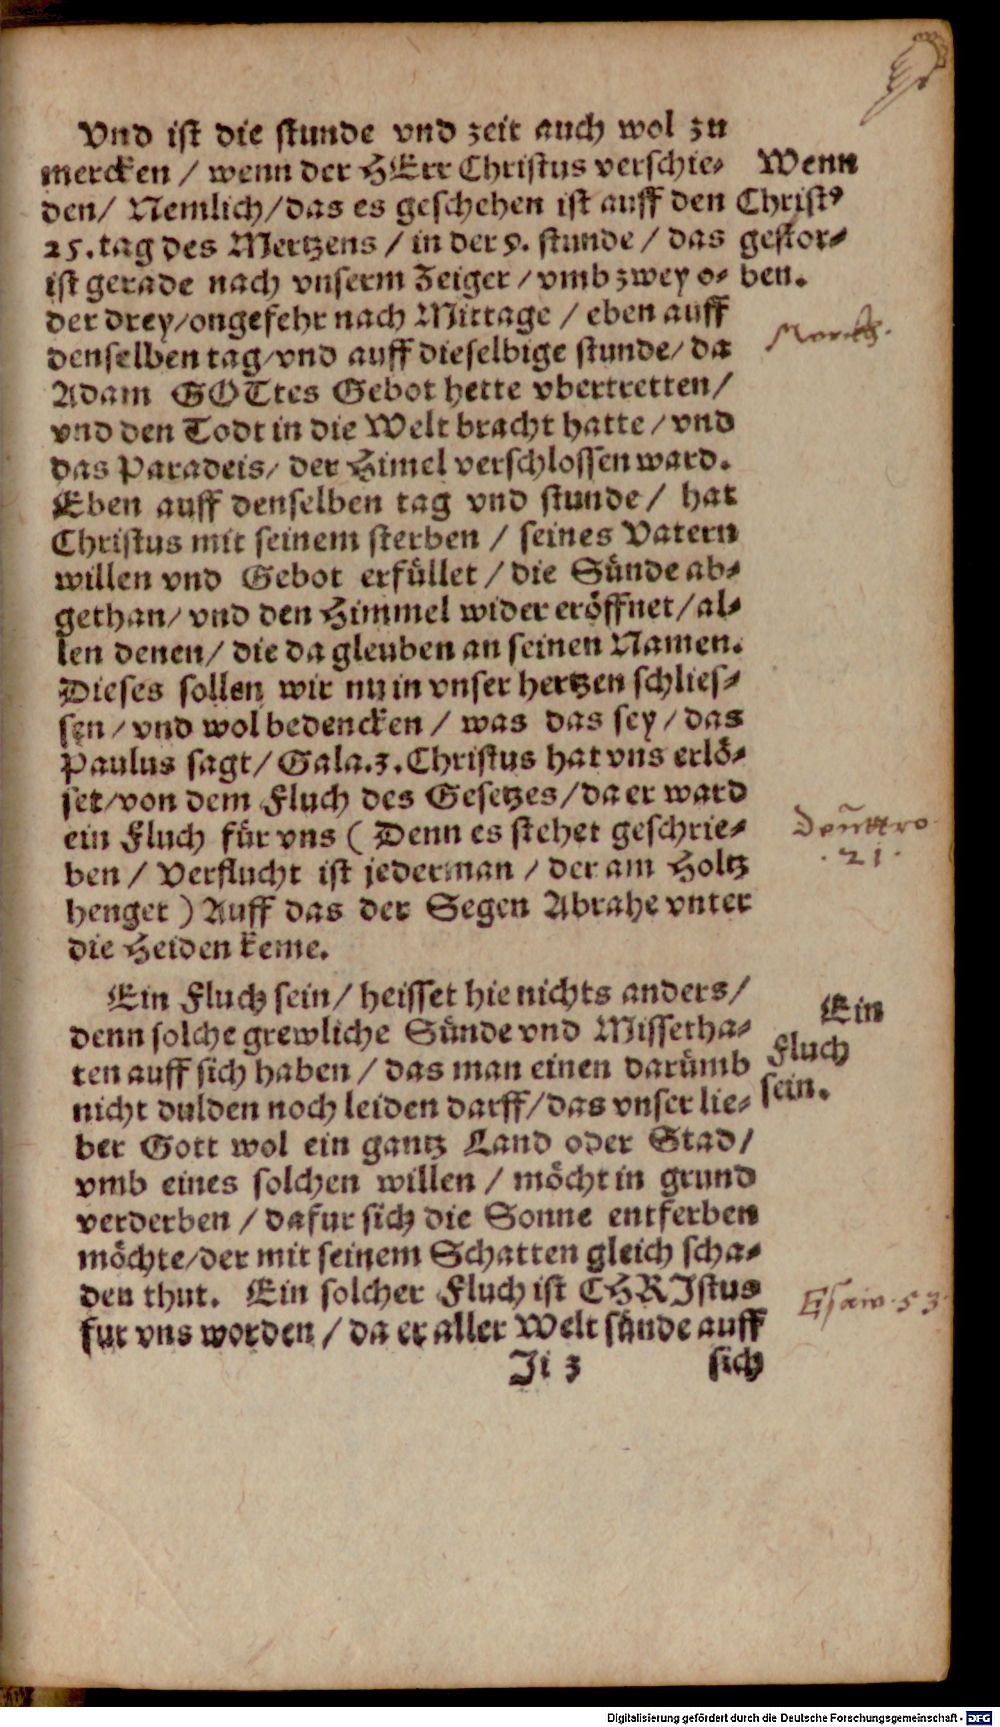 Vnd ist die stunde vnd zeit auch wol zu
mercken / wenn der HErr Christus verschie-
den/ Nemlich/das es geschehen ist auff den
25.tag des Mertzens / in der 9. stunde / das
ist gerade nach vnserm Zeiger / vmb zwey o-
der drey/ongefehr nach Mittage / eben auff
denselben tag/vnd auff dieselbige stunde/ da
Adam GOTtes Gebot hette vbertretten/
vnd den Todt in die Welt bracht hatte / vnd
das Paradeis/ der Himel verschlossen ward.
Eben auff denselben tag vnd stunde/ hat
Christus mit seinem sterben / seines Vatern
willen vnd Gebot erfüllet / die Sünde ab-
gethan/ vnd den Himmel wider eröffnet/al-
len denen/ die da gleuben an seinen Namen.
Dieses sollen wir nu in vnser hertzen schlies-
sen / vnd wol bedencken / was das sey / das
Paulus sagt/ Gala.3. Christus hat vns erlö-
set/von dem Fluch des Gesetzes/da er ward
ein Fluch für vns ( Denn es stehet geschrie-
ben / Verflucht ist jederman / der am Holtz
henget ) Auff das der Segen Abrahe vnter
die Heiden keme.
Wenn
Christ9
gestor-
ben.
Merck.
Deuttro
.21.
Ein Fluch sein/ heisset hie nichts anders/
denn solche grewliche Sünde vnd Missetha-
ten auff sich haben / das man einen darümb
nicht dulden noch leiden darff/das vnser lie-
ber Gott wol ein gantz Land oder Stad/
vmb eines solchen willen / möcht in grund
verderben / dafur sich die Sonne entferben
möchte/der mit seinem Schatten gleich scha-
den thut. Ein solcher Fluch ist CHRIstus
fur vns worden / da er aller Welt sünde auff
Ein
Fluch
sein.
Esaiw.53
Ji 3 sich
Digitalisierung gefördert durch die Deutsche Forschungsgemeinschaft - DFG